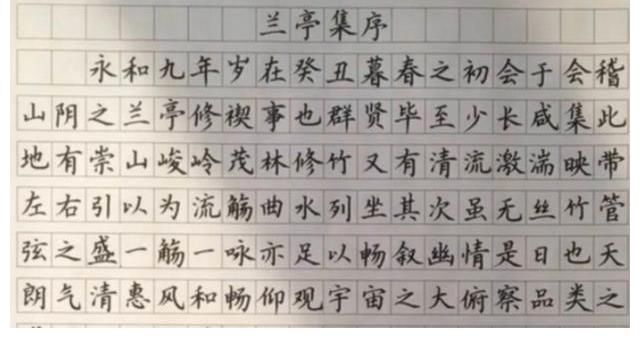 兰亭集序
永和九年岁在癸丑暮春之初会于会稽
山阴之兰亭修禊事也群贤毕至少长咸集此
地有崇山峻岭茂林修竹又有清流激湍映带
左右引以为流觞曲水列坐其次虽无丝竹管
弦之盛一觞一咏亦足以畅叙幽情是日也天
朗气清惠风和畅仰观宇宙之大俯察品类之